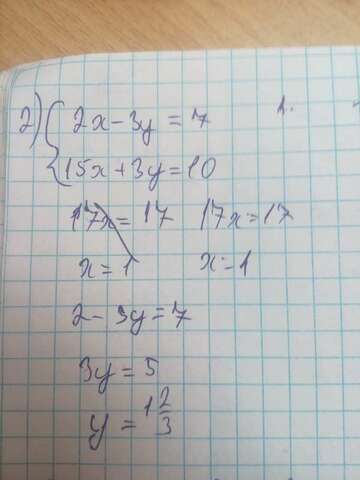 2) { 2x - 3y = 7
15x + 3y = 10
17x = 17 17x = 17
x = 1 x = 1
2 - 3y = 7
3y = 5
y = 1 2/3